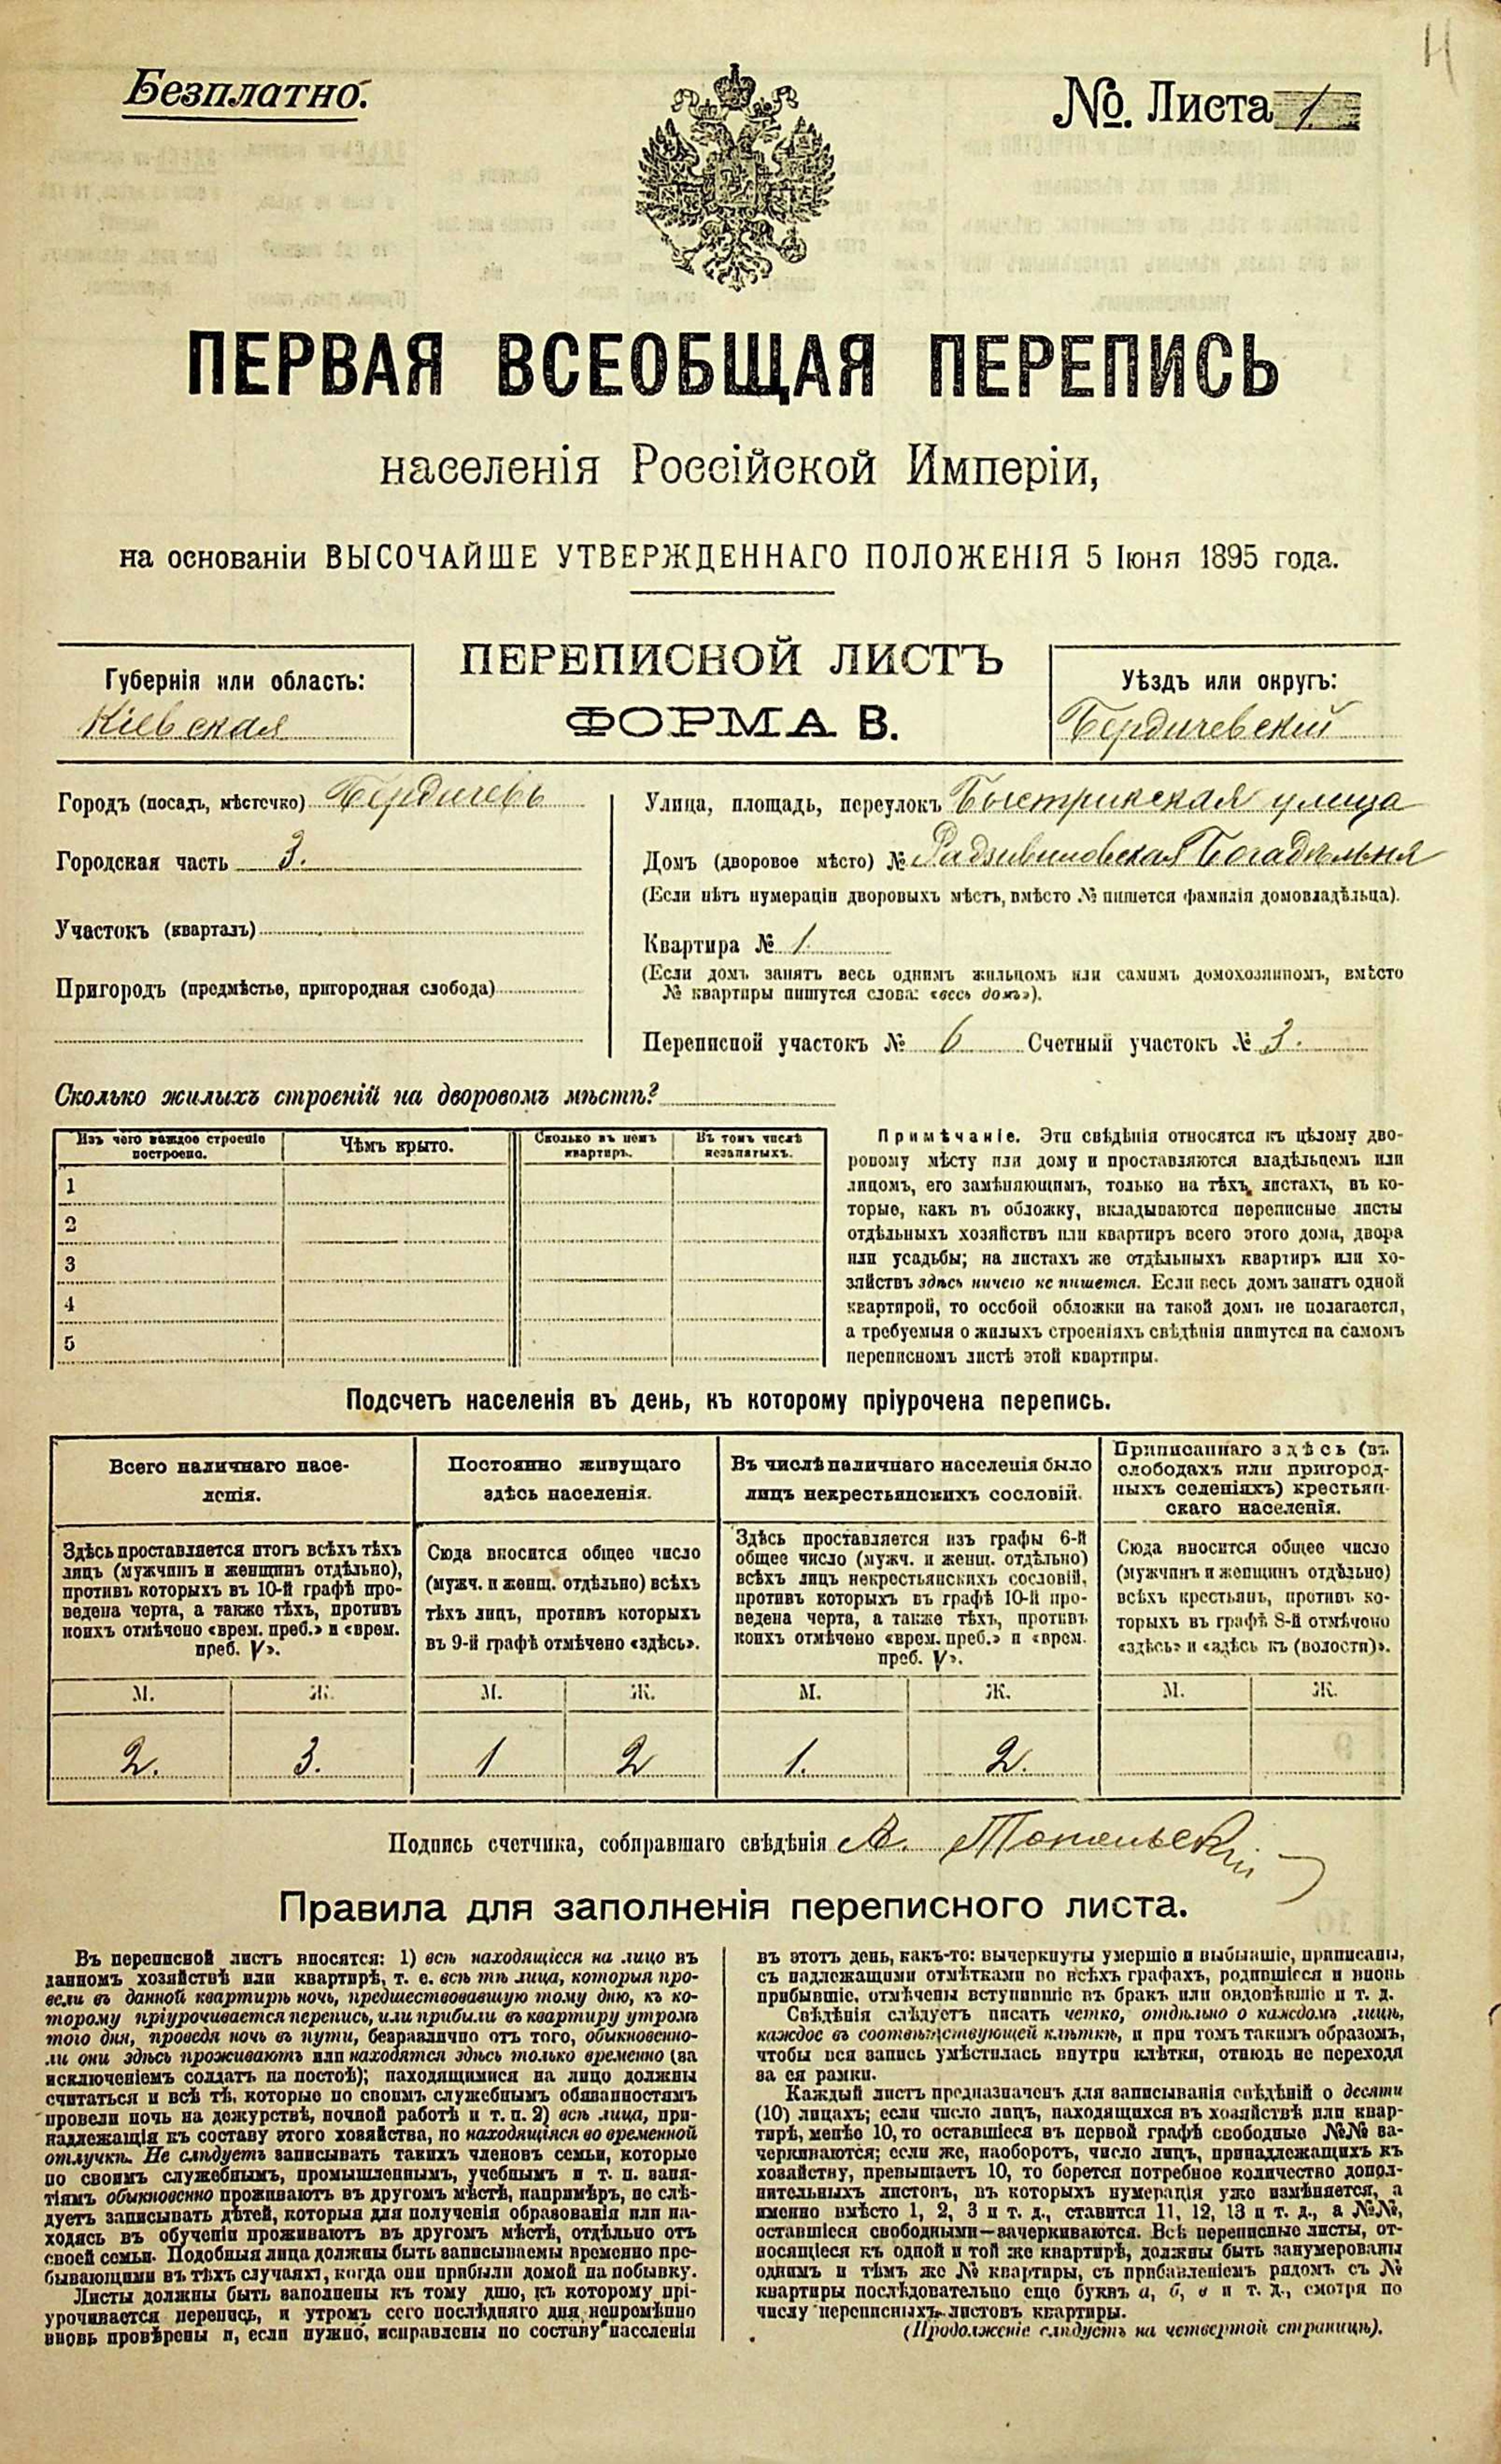 Безплатно.
№. Листа 1.
ПЕРВАЯ ВСЕОБЩАЯ ПЕРЕПИСЬ
населенія Россійской Имперіи,
на основаніи ВЫСОЧАЙШЕ УТВЕРЖДЕННАГО ПОЛОЖЕНІЯ 5 Іюня 1895 года.
Губернія или область:
Кіевская
ПЕРЕПИСНОЙ ЛИСТЪ
ФОРМА В.
Уѣздъ или округъ:
Бердичевскій
Городъ (посадъ, мѣстечко) Бердичевъ
Городская часть 3.
Участокъ (кварталъ)
Пригородъ (предмѣстье, пригородная слобода)
Улица, площадь, переулокъ Быстрикская улица
Домъ (дворовое мѣсто) № Радзивиловская Богадѣльня
(Если нѣтъ нумераціи дворовыхъ мѣстъ, вмѣсто № пишется фамилія домовладѣльца).
Квартира № 1
(Если домъ занятъ весь однимъ жильцомъ или самимъ домохозяиномъ, вмѣсто
№ квартиры пишутся слова: «весь домъ»).
Переписной участокъ № 6 Счетный участокъ № 3.
Сколько жилыхъ строеній на дворовомъ мѣстѣ?
Изъ чего каждое строеніе
построено.
Чѣмъ крыто.
Сколько въ немъ
квартиръ.
Въ томъ числѣ
незанятыхъ.
1
2
3
4
5
Примѣчаніе. Эти свѣдѣнія относятся къ цѣлому дво-
ровому мѣсту или дому и проставляются владѣльцемъ или
лицомъ, его замѣняющимъ, только на тѣхъ листахъ, въ ко-
торые, какъ въ обложку, вкладываются переписные листы
отдѣльныхъ хозяйствъ или квартиръ всего этого дома, двора
или усадьбы; на листахъ же отдѣльныхъ квартиръ или хо-
зяйствъ здѣсь ничего не пишется. Если весь домъ занятъ одной
квартирой, то особой обложки на такой домъ не полагается,
а требуемыя о жилыхъ строеніяхъ свѣдѣнія пишутся на самомъ
переписномъ листѣ этой квартиры.
Подсчетъ населенія въ день, къ которому пріурочена перепись.
Всего наличнаго насе-
ленія.
Здѣсь проставляется итогъ всѣхъ тѣхъ
лицъ (мужчинъ и женщинъ отдѣльно),
противъ которыхъ въ 10-й графѣ про-
ведена черта, а также тѣхъ, противъ
коихъ отмѣчено «врем. преб.» и «врем.
преб. V».
Постоянно живущаго
здѣсь населенія.
Сюда вносится общее число
(мужч. и женщ. отдѣльно) всѣхъ
тѣхъ лицъ, противъ которыхъ
въ 9-й графѣ отмѣчено «здѣсь».
Въ числѣ наличнаго населенія было
лицъ некрестьянскихъ сословій.
Здѣсь проставляется изъ графы 6-й
общее число (мужч. и женщ. отдѣльно)
всѣхъ лицъ некрестьянскихъ сословій,
противъ которыхъ въ графѣ 10-й про-
ведена черта, а также тѣхъ, противъ
коихъ отмѣчено «врем. преб.» и «врем.
преб. V».
Приписаннаго здѣсь (въ
слободахъ или пригород-
ныхъ селеніяхъ) крестьян-
скаго населенія.
Сюда вносится общее число
(мужчинъ и женщинъ отдѣльно)
всѣхъ крестьянъ, противъ ко-
торыхъ въ графѣ 8-й отмѣчено
«здѣсь» и «здѣсь къ (волости)».
М. Ж. М. Ж. М. Ж. М. Ж.
2. 3. 1 2 1. 2.
Подпись счетчика, собиравшаго свѣдѣнія
Правила для заполненія переписного листа.
Въ переписной листъ вносятся: 1) всѣ находящіеся на лицо въ
данномъ хозяйствѣ или квартирѣ, т. е. всѣ тѣ лица, которыя про-
вели въ данной квартирѣ ночь, предшествовавшую тому дню, къ ко-
торому пріурочивается перепись, или прибыли въ квартиру утромъ
того дня, проведя ночь въ пути, безразлично отъ того, обыкновенно-
ли они здѣсь проживаютъ или находятся здѣсь только временно (за
исключеніемъ солдатъ на постоѣ); находящимися на лицо должны
считаться и всѣ тѣ, которые по своимъ служебнымъ обязанностямъ
провели ночь на дежурствѣ, ночной работѣ и т. п. 2) всѣ лица, при-
надлежащія къ составу этого хозяйства, но находящіяся во временной
отлучкѣ. Не слѣдуетъ записывать такихъ членовъ семьи, которые
по своимъ служебнымъ, промышленнымъ, учебнымъ и т. п. заня-
тіямъ обыкновенно проживаютъ въ другомъ мѣстѣ, напримѣръ, не слѣ-
дуетъ записывать дѣтей, которыя для полученія образованія или на-
ходясь въ обученіи проживаютъ въ другомъ мѣстѣ, отдѣльно отъ
своей семьи. Подобныя лица должны быть записываемы временно пре-
бывающими въ тѣхъ случаяхъ, когда они прибыли домой на побывку.
Листы должны быть заполнены къ тому дню, къ которому прі-
урочивается перепись, и утромъ сего послѣдняго дня непремѣнно
вновь провѣрены и, если нужно, исправлены по составу населенія
въ этотъ день, какъ-то: вычеркнуты умершіе и выбывшіе, приписаны,
съ надлежащими отмѣтками по всѣхъ графахъ, родившіеся и вновь
прибывшіе, отмѣчены вступившіе въ бракъ или овдовѣвшіе и т. д.
Свѣдѣнія слѣдуетъ писать четко, отдѣльно о каждомъ лицѣ,
каждое въ соотвѣтствующей клѣткѣ, и при томъ такимъ образомъ,
чтобы вся запись умѣстилась внутри клѣтки, отнюдь не переходя
за ея рамки.
Каждый листъ предназначенъ для записыванія свѣдѣній о десяти
(10) лицахъ; если число лицъ, находящихся въ хозяйствѣ или квар-
тирѣ, менѣе 10, то оставшіеся въ первой графѣ свободные №№ за-
черкиваются; если же, наоборотъ, число лицъ, принадлежащихъ къ
хозяйству, превышаетъ 10, то берется потребное количество допол-
нительныхъ листовъ, въ которыхъ нумерація уже измѣняется, а
именно вмѣсто 1, 2, 3 и т. д., ставится 11, 12, 13 и т. д., а №№,
оставшіеся свободными—зачеркиваются. Всѣ переписные листы, от-
носящіеся къ одной и той же квартирѣ, должны быть занумерованы
однимъ и тѣмъ же № квартиры, съ прибавленіемъ рядомъ съ №
квартиры послѣдовательно еще буквъ а, б, в и т. д., смотря по
числу переписныхъ листовъ квартиры.
(Продолженіе слѣдуетъ на четвертой страницѣ).